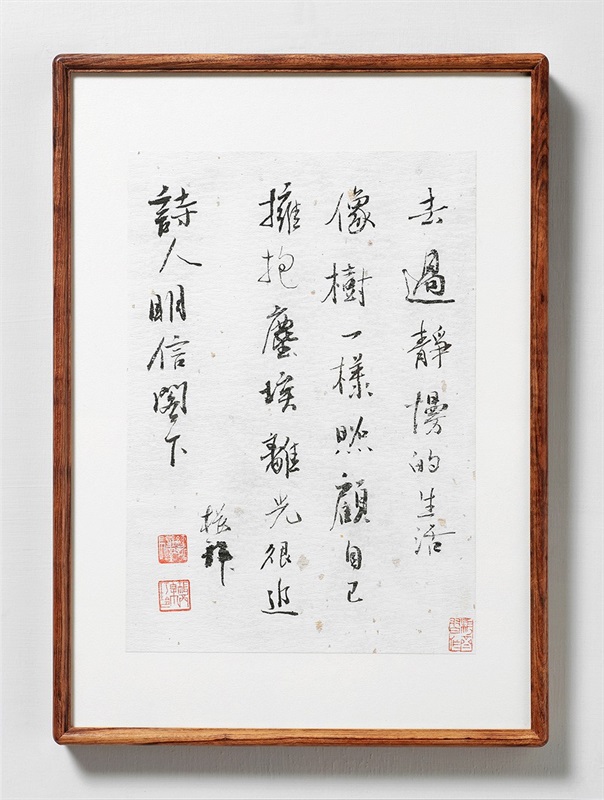 去過靜慢的生活
像樹一樣照顧自己
擁抱塵埃離光很近
詩人明信閣下
振祥